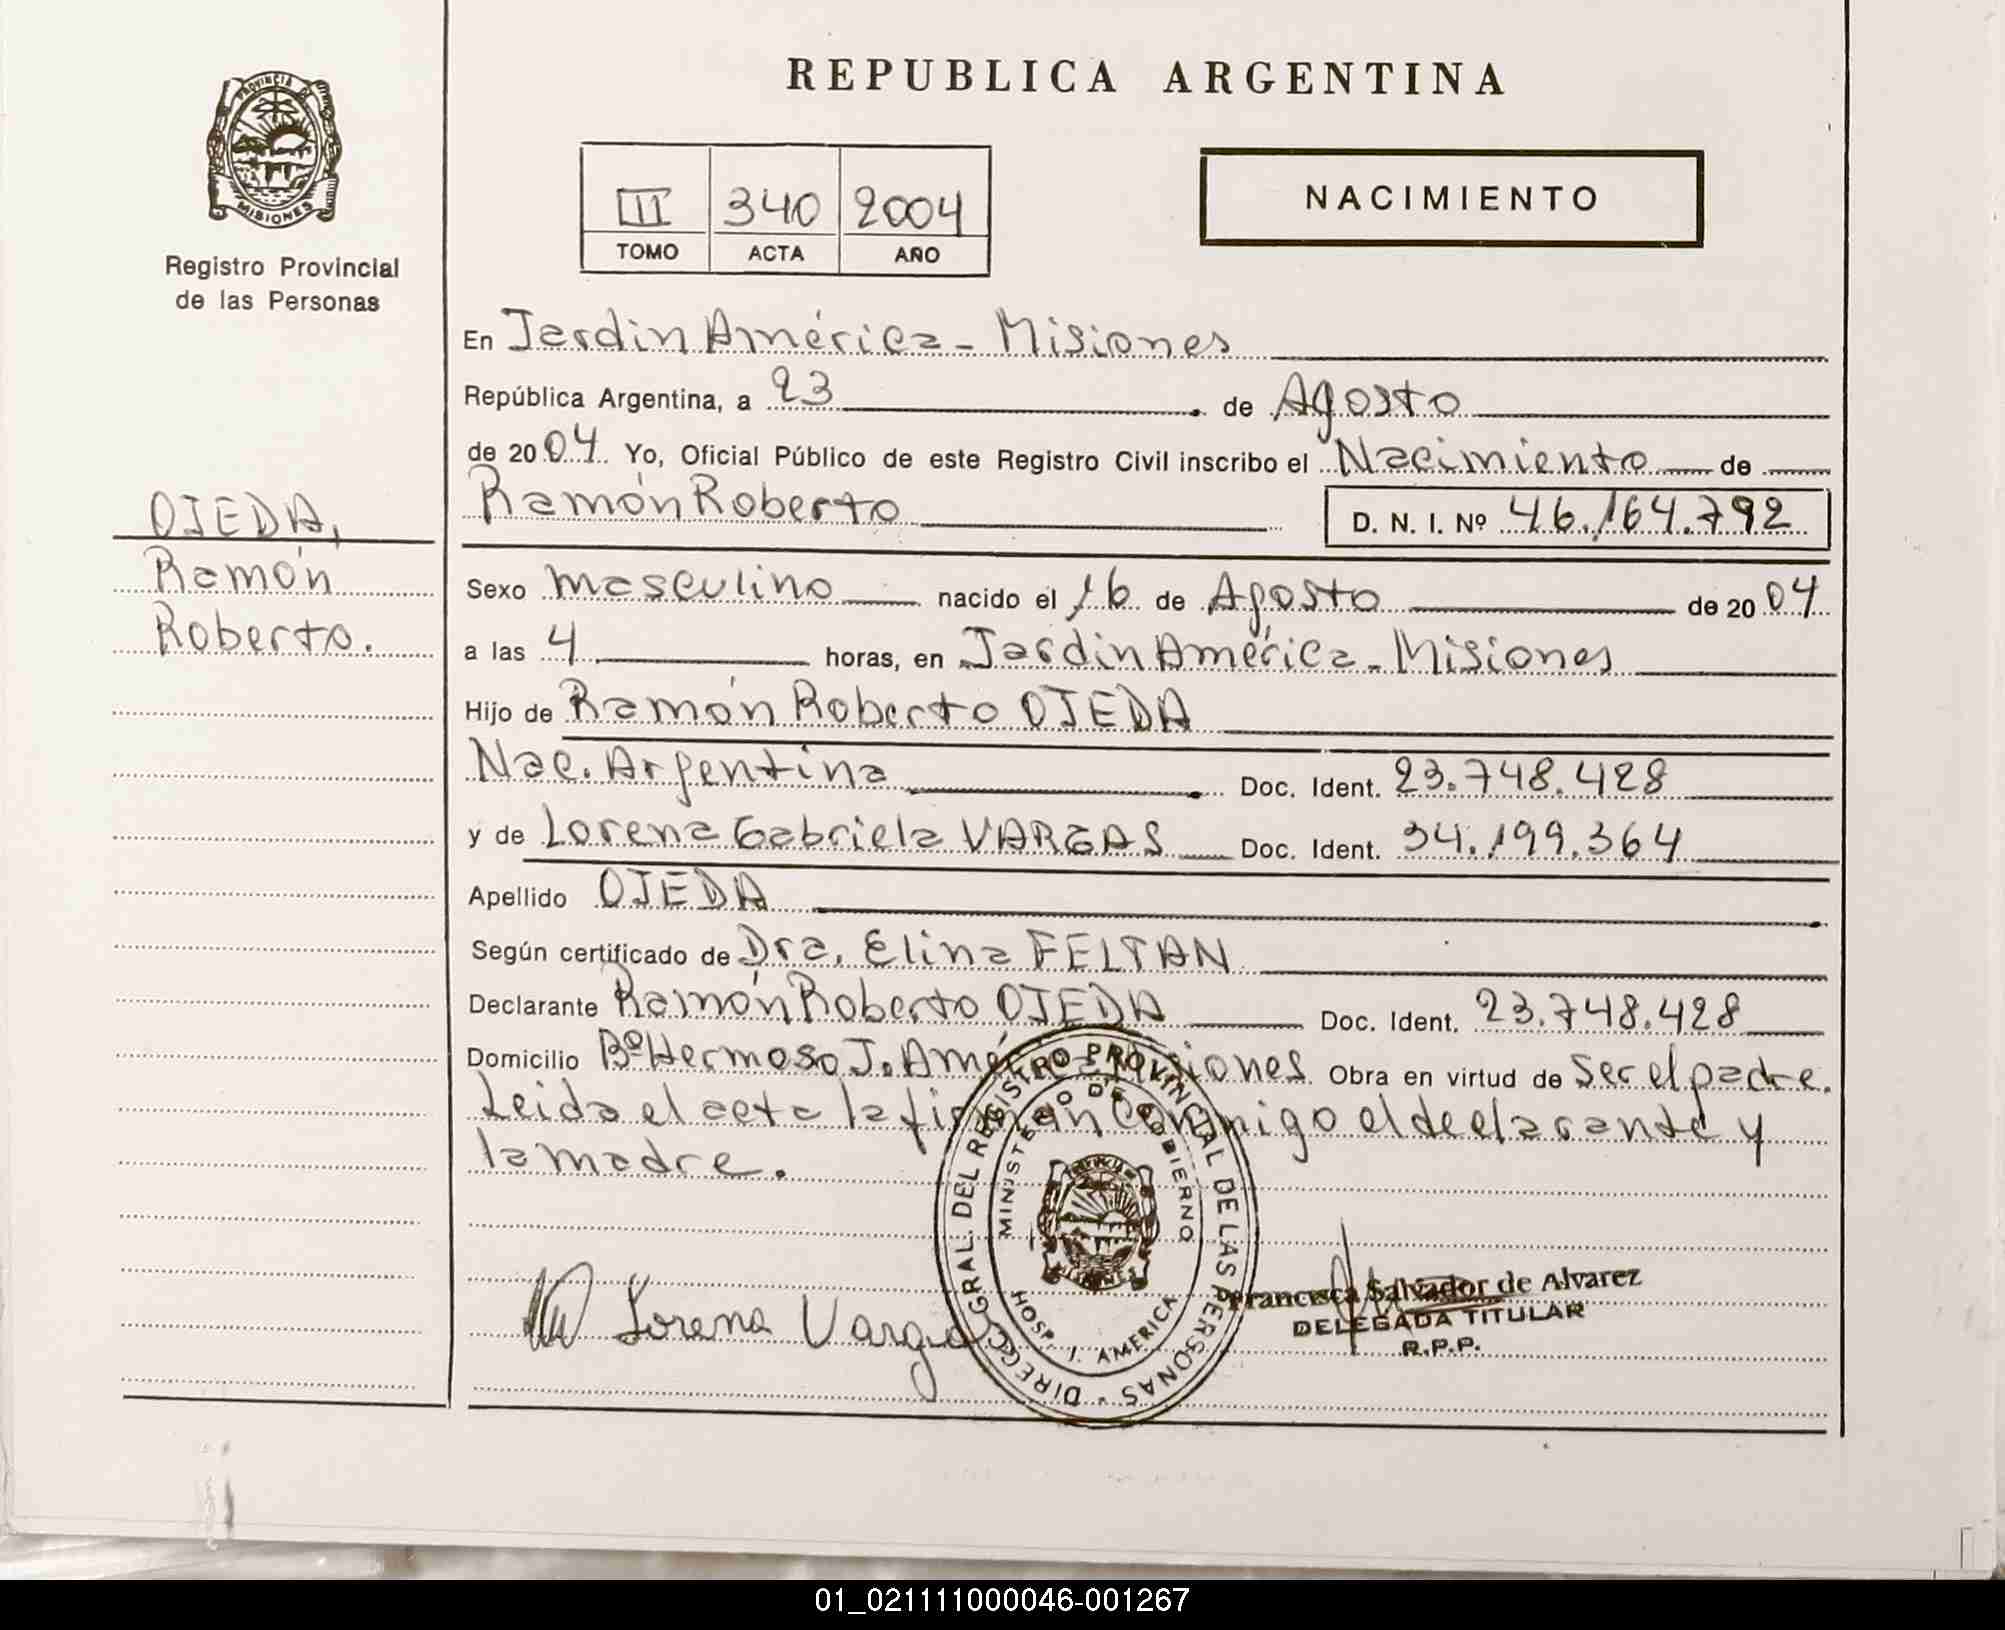 PROVINCIA DE
MISIONES
Registro Provincial
de las Personas
REPUBLICA ARGENTINA
III 340 2004
TOMO ACTA AÑO
NACIMIENTO
En Jardin América - Misiones
República Argentina, a 23 de Agosto
de 20 04. Yo, Oficial Público de este Registro Civil inscribo el Nacimiento de
Ramón Roberto D. N. I. Nº 46.164.792
OJEDA,
Ramón
Roberto.
Sexo masculino nacido el 16 de Agosto de 20 04
a las 4 horas, en Jardin América - Misiones
Hijo de Ramón Roberto OJEDA
Nac. Argentina Doc. Ident. 23.748.428
y de Lorena Gabriela VARGAS Doc. Ident. 34.199.364
Apellido OJEDA
Según certificado de Dra. Elina FELTAN
Declarante Ramón Roberto OJEDA Doc. Ident. 23.748.428
Domicilio Bº Hermoso J. América - Misiones Obra en virtud de Ser el padre.
Leida el acta la firman conmigo el declarante y
la madre.
DIRECC. GRAL. DEL REGISTRO PROVINCIAL DE LAS PERSONAS -
MINISTERIO DE GOBIERNO
MISIONES
HOSP. J. AMERICA
Lorena Vargas
Francisca Salvador de Alvarez
DELEGADA TITULAR
R.P.P.
01_021111000046-001267